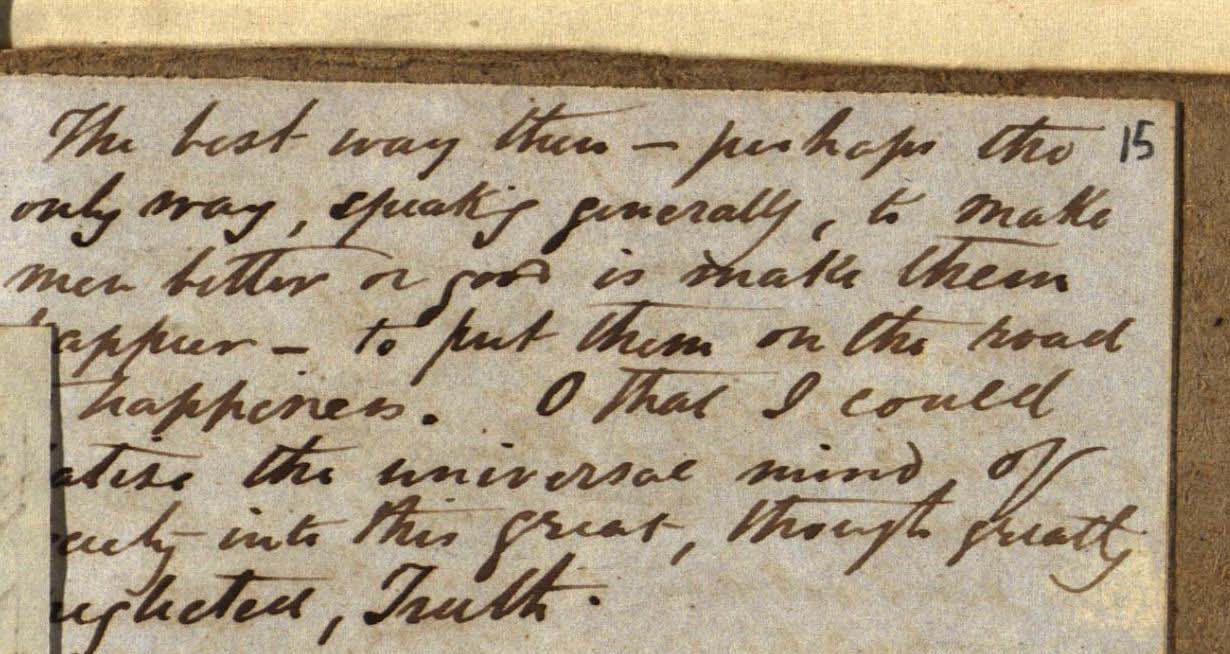 The best way then — perhaps the 15
only way, speak'g generally, to make
men better or good is make them
appier — to put them on the road
happiness. O that I could
the universal mind of
into this great, though greatly
neglected, Truth.